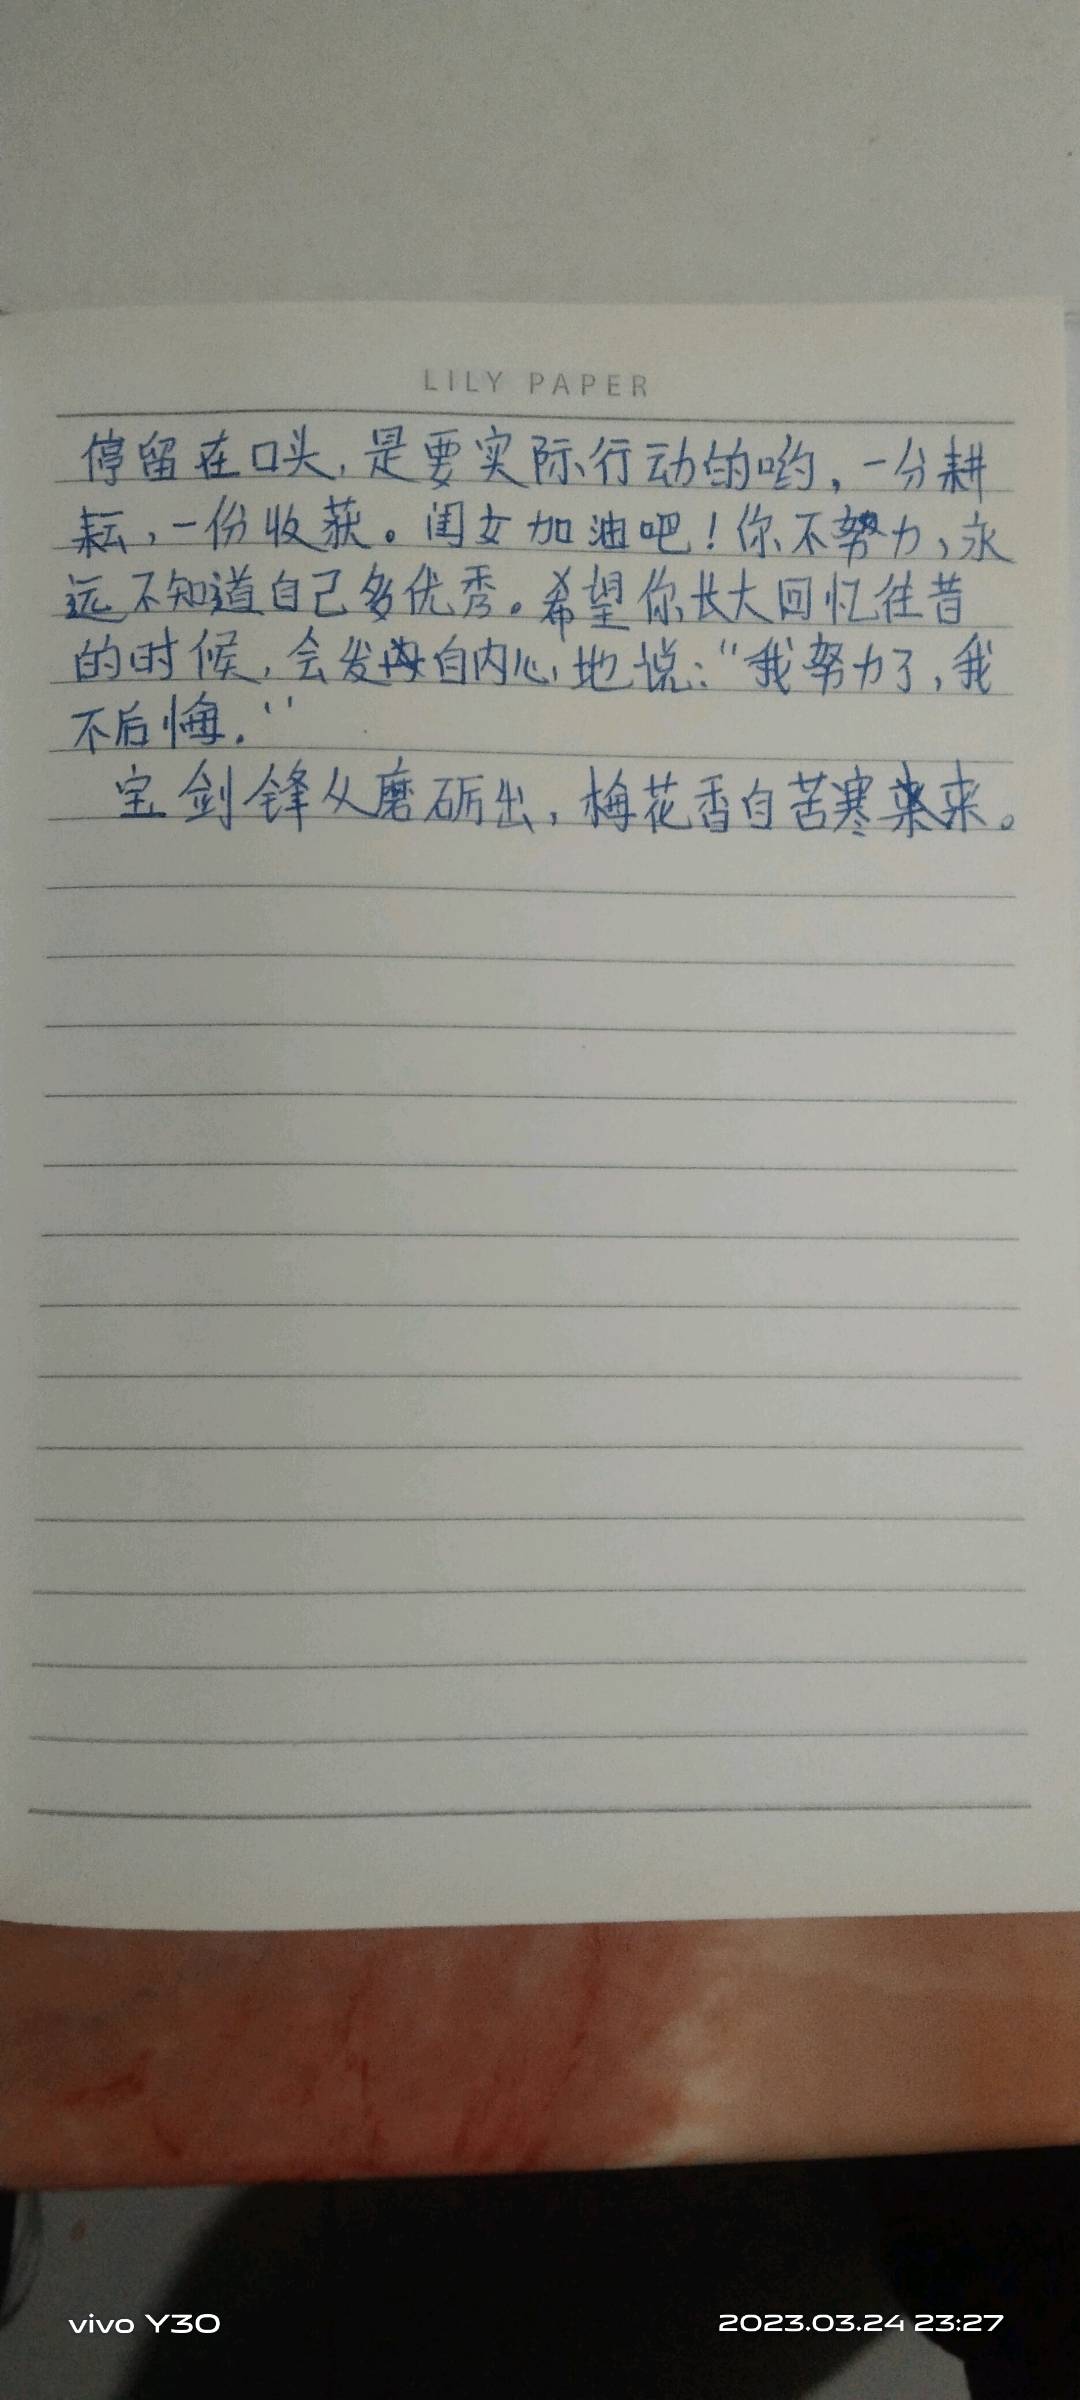 LILY PAPER
停留在口头，是要实际行动的哟，一分耕
耘，一份收获。闺女加油吧！你不努力，永
远不知道自己多优秀。希望你长大回忆往昔
的时候，会发自内心地说：“我努力了，我
不后悔.”
宝剑锋从磨砺出，梅花香自苦寒来。
vivo Y30
2023.03.24 23:27